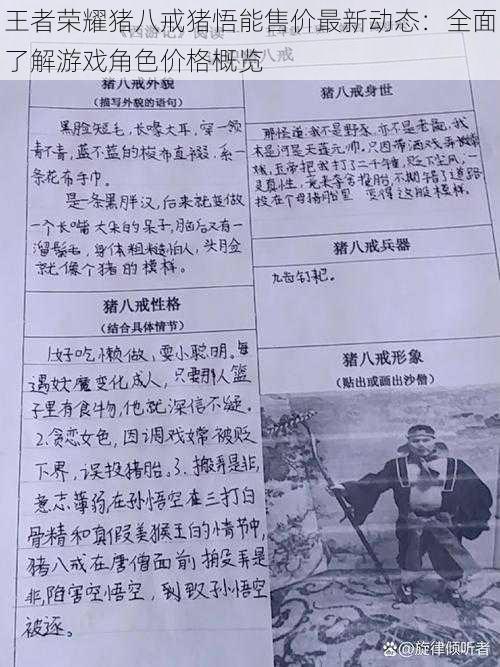 王者荣耀猪八戒猪悟能售价最新动态：全面
了解游戏角色价格概览
猪八戒外貌
（描写外貌的语句）
黑脸短毛，长喙大耳，穿一领
青不青，蓝不蓝的梭布直裰，系一
条花布手巾。
是一条黑胖汉，后来就变做
一个长嘴大耳朵的呆子，脑后又有一
溜鬃毛，身体粗糙怕人，头脸
就像个猪的模样。
猪八戒性格
（结合具体情节）
1.好吃懒做，耍小聪明。每
遇妖魔变化成人，只要那人篮
子里有食物，他就深信不疑。
2.贪恋女色，因调戏嫦被贬
下界，误投猪胎。3.搬弄是非，
意志薄弱，在孙悟空在三打白
骨精和真假美猴王的情节中，
猪八戒在唐僧面前搬弄是
非，陷害空悟空，到致孙悟空
被逐。
猪八戒身世
那怪道：我不是野豕，亦不是老彘，我
本是河是天蓬元帅，只因带酒戏弄嫦
娥，玉帝把我打了二千锤，贬下尘凡，一
灵真性，竟来夺舍投胎，不期错了道路，
投在个母猪胎里 变得这般模样。
猪八戒兵器
九齿钉耙。
猪八戒形象
（贴出或画出沙僧）
百家号@旋律倾听者